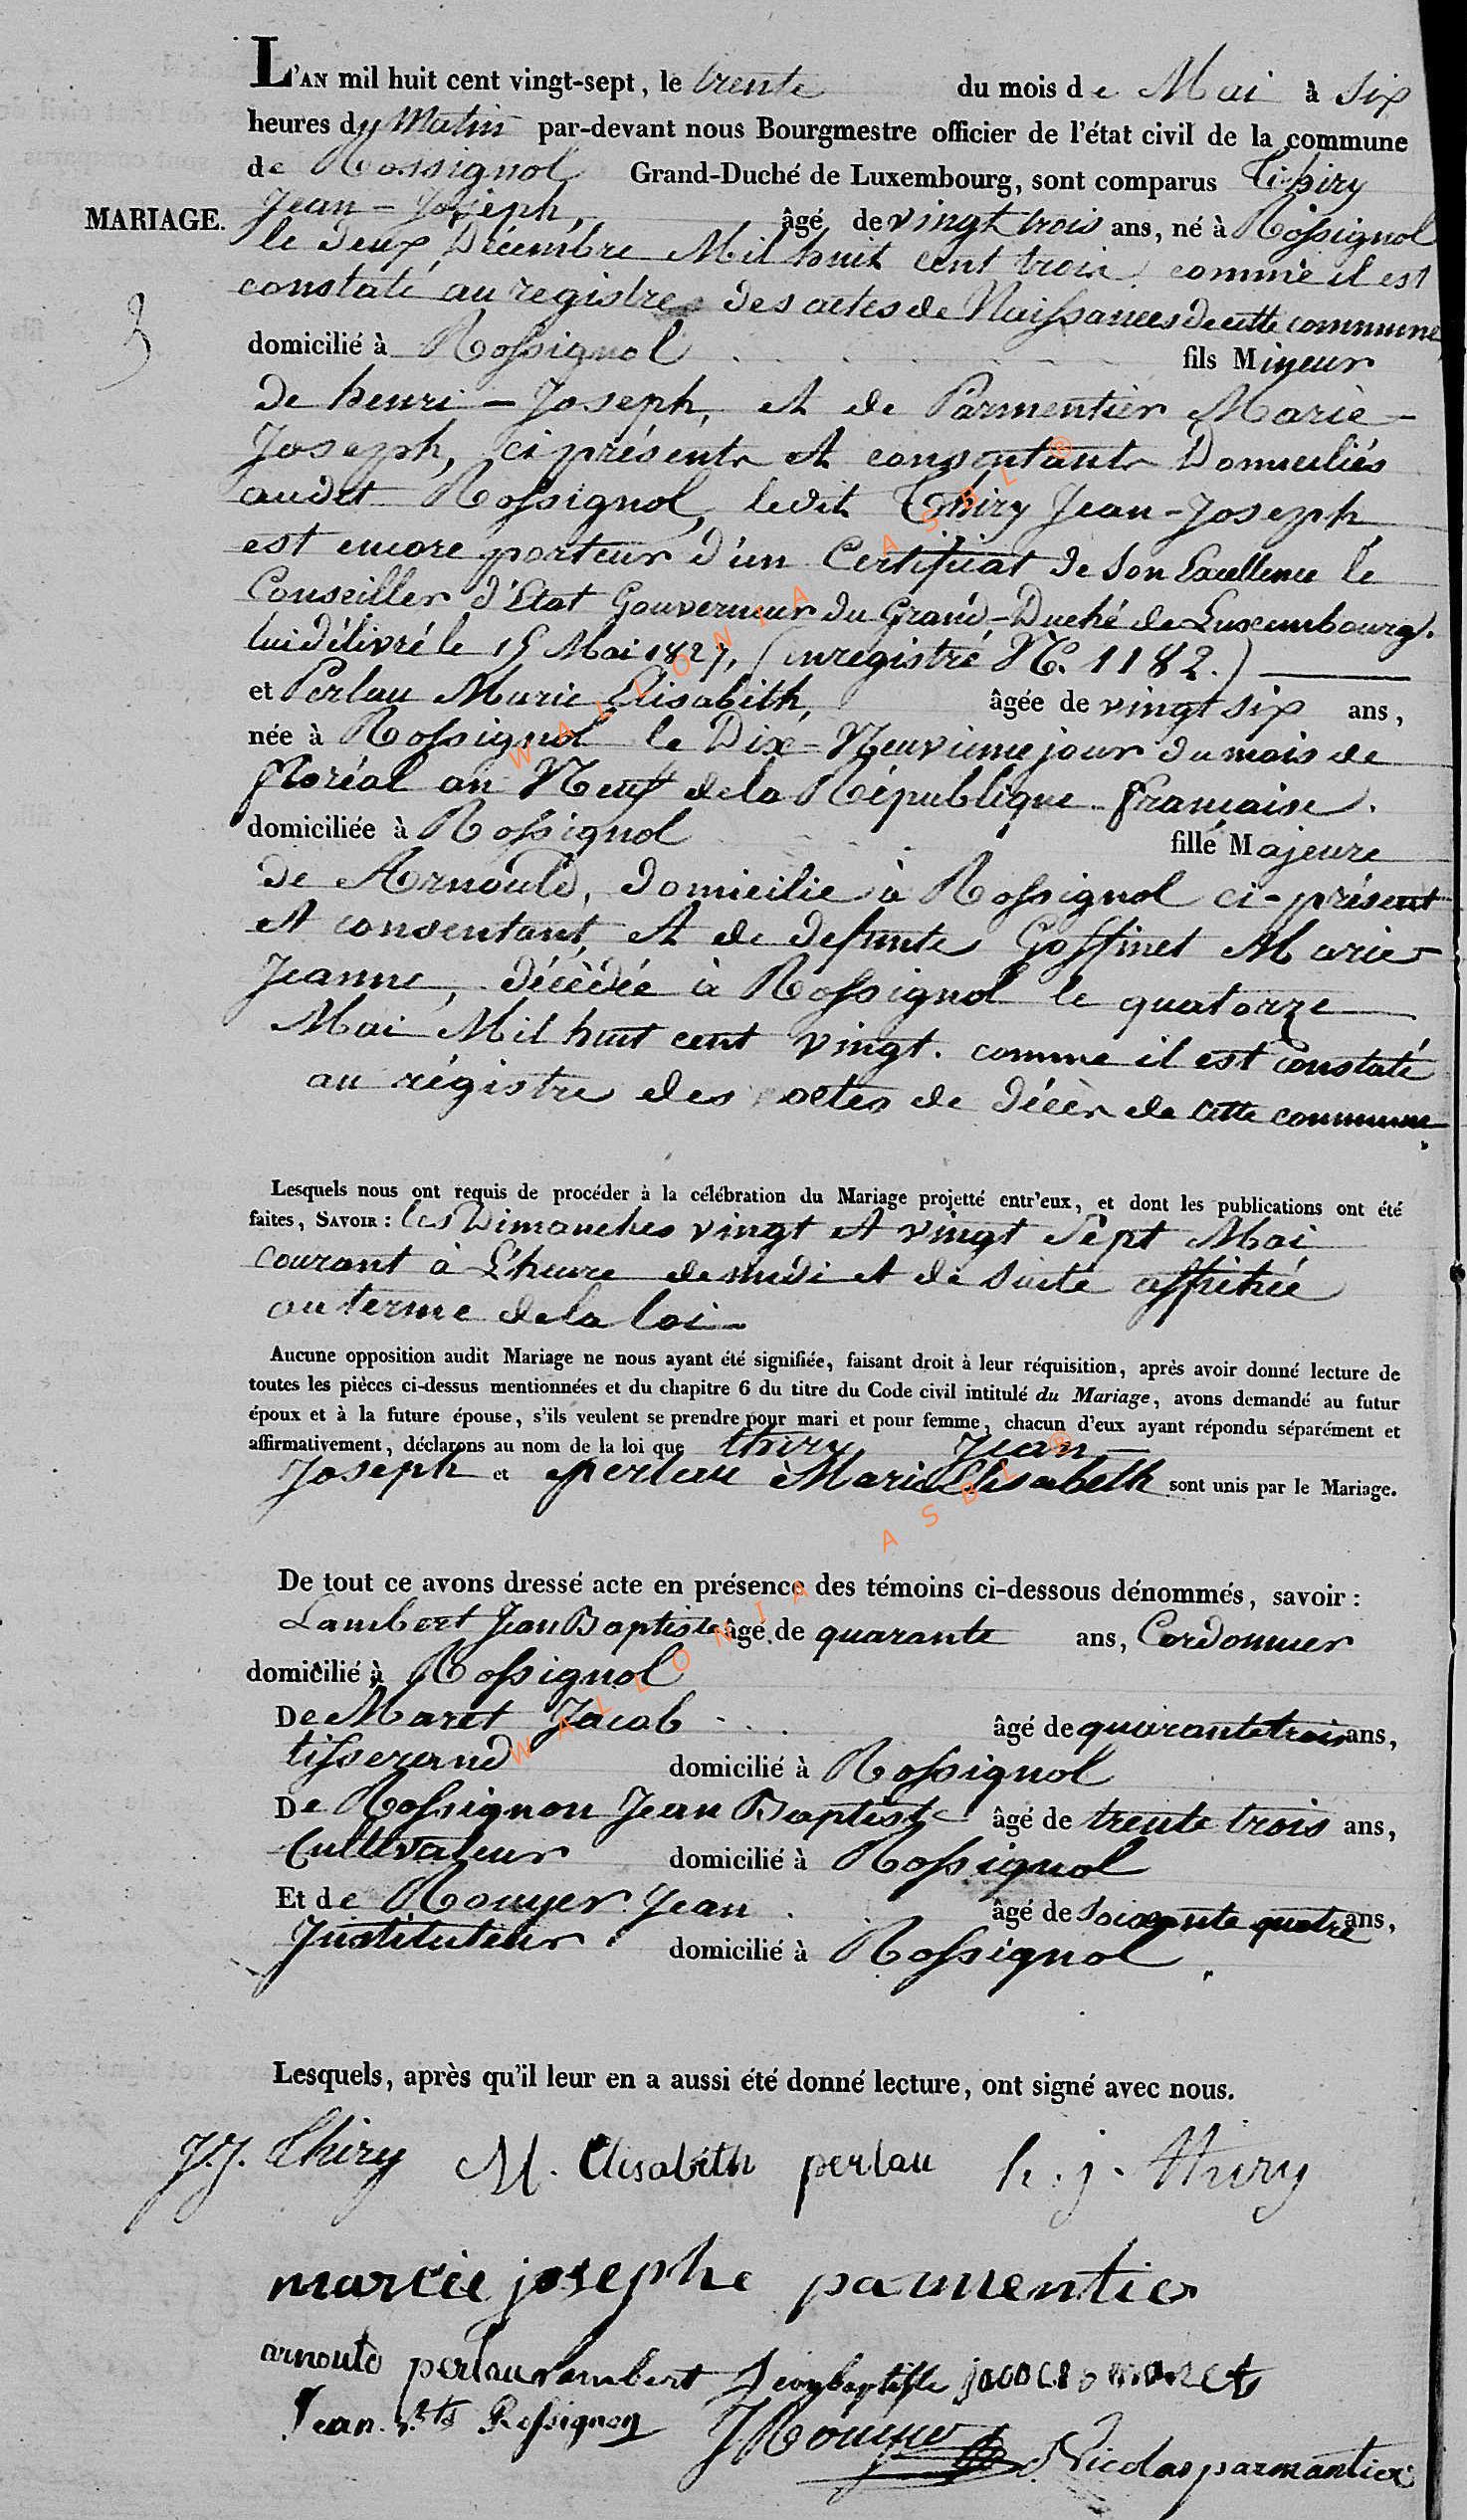 L'AN mil huit cent vingt-sept, le trente du mois de Mai à six
heures du Matin par-devant nous Bourgmestre officier de l'état civil de la commune
de Rossignol Grand-Duché de Luxembourg, sont comparus Thiry
MARIAGE. Jean-Joseph, âgé de vingt trois ans, né à Rossignol
le deux Décembre Mil huit cent trois, comme il est
constaté au registre des actes de Naissances de cette commune,
3
domicilié à Rossignol fils Mineur
de henri-Joseph, et de Parmentier Marie-
Joseph, ci présents et consentants Domiciliés
audit Rossignol, ledit Thiry Jean-Joseph
est encore porteur d'un Certificat de Son Excellence le
Conseiller d'Etat Gouverneur du Grand-Duché de Luxembourg.
lui délivré le 15 Mai 1827, (enregistré N°. 1182.)
et Perlau Marie Elisabeth, âgée de vingt six ans,
née à Rossignol le Dix-Neuvieme jour du mois de
floréal an Neuf de la République française.
domiciliée à Rossignol fille Majeure
de Arnould, domicilié à Rossignol ci-présent
et consentant, et de defunte Goffinet Marie-
Jeanne, décédée à Rossignol le quatorze
Mai Mil huit cent vingt. comme il est constaté
au régistre des actes de décès de cette commune.
Lesquels nous ont requis de procéder à la célébration du Mariage projetté entr'eux, et dont les publications ont été
faites, SAVOIR : les Dimanches vingt et vingt Sept Mai
courant à L'heure de midi et de suite affichée
au terme de la loi
Aucune opposition audit Mariage ne nous ayant été signifiée, faisant droit à leur réquisition, après avoir donné lecture de
toutes les pièces ci-dessus mentionnées et du chapitre 6 du titre du Code civil intitulé du Mariage, avons demandé au futur
époux et à la future épouse, s'ils veulent se prendre pour mari et pour femme, chacun d'eux ayant répondu séparément et
affirmativement, déclarons au nom de la loi que thiry Jean-
Joseph et perlau Marie Elisabeth sont unis par le Mariage.
De tout ce avons dressé acte en présence des témoins ci-dessous dénommés, savoir :
Lambert Jean Baptiste âgé de quarante ans, Cordonnier
domicilié à Rossignol
De Maret Jacob âgé de quarante trois ans,
tisserand domicilié à Rossignol
De Rossignon Jean Baptiste âgé de trente trois ans,
Cultivateur domicilié à Rossignol
Et de Rouyer Jean âgé de soixante quatre ans,
Instituteur domicilié à Rossignol
Lesquels, après qu'il leur en a aussi été donné lecture, ont signé avec nous.
J.J. Thiry M. Elisabeth perlau h. j. thiry
marie josephe parmentier
arnould perlau Lambert Jean baptiste jacob maret
Jean Bte Rossignon J Rouyer Nicolas parmantier
WALLONIA ASBL ®
WALLONIA ASBL ®